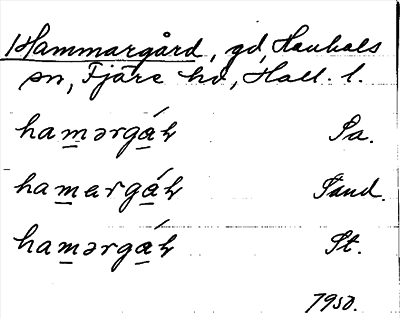 Hammargård, gd, Hanhals
sn, Fjäre hd, Hall. l.
hamərgá Sa.
hamargá Sand.
hamərgá St.
1950.